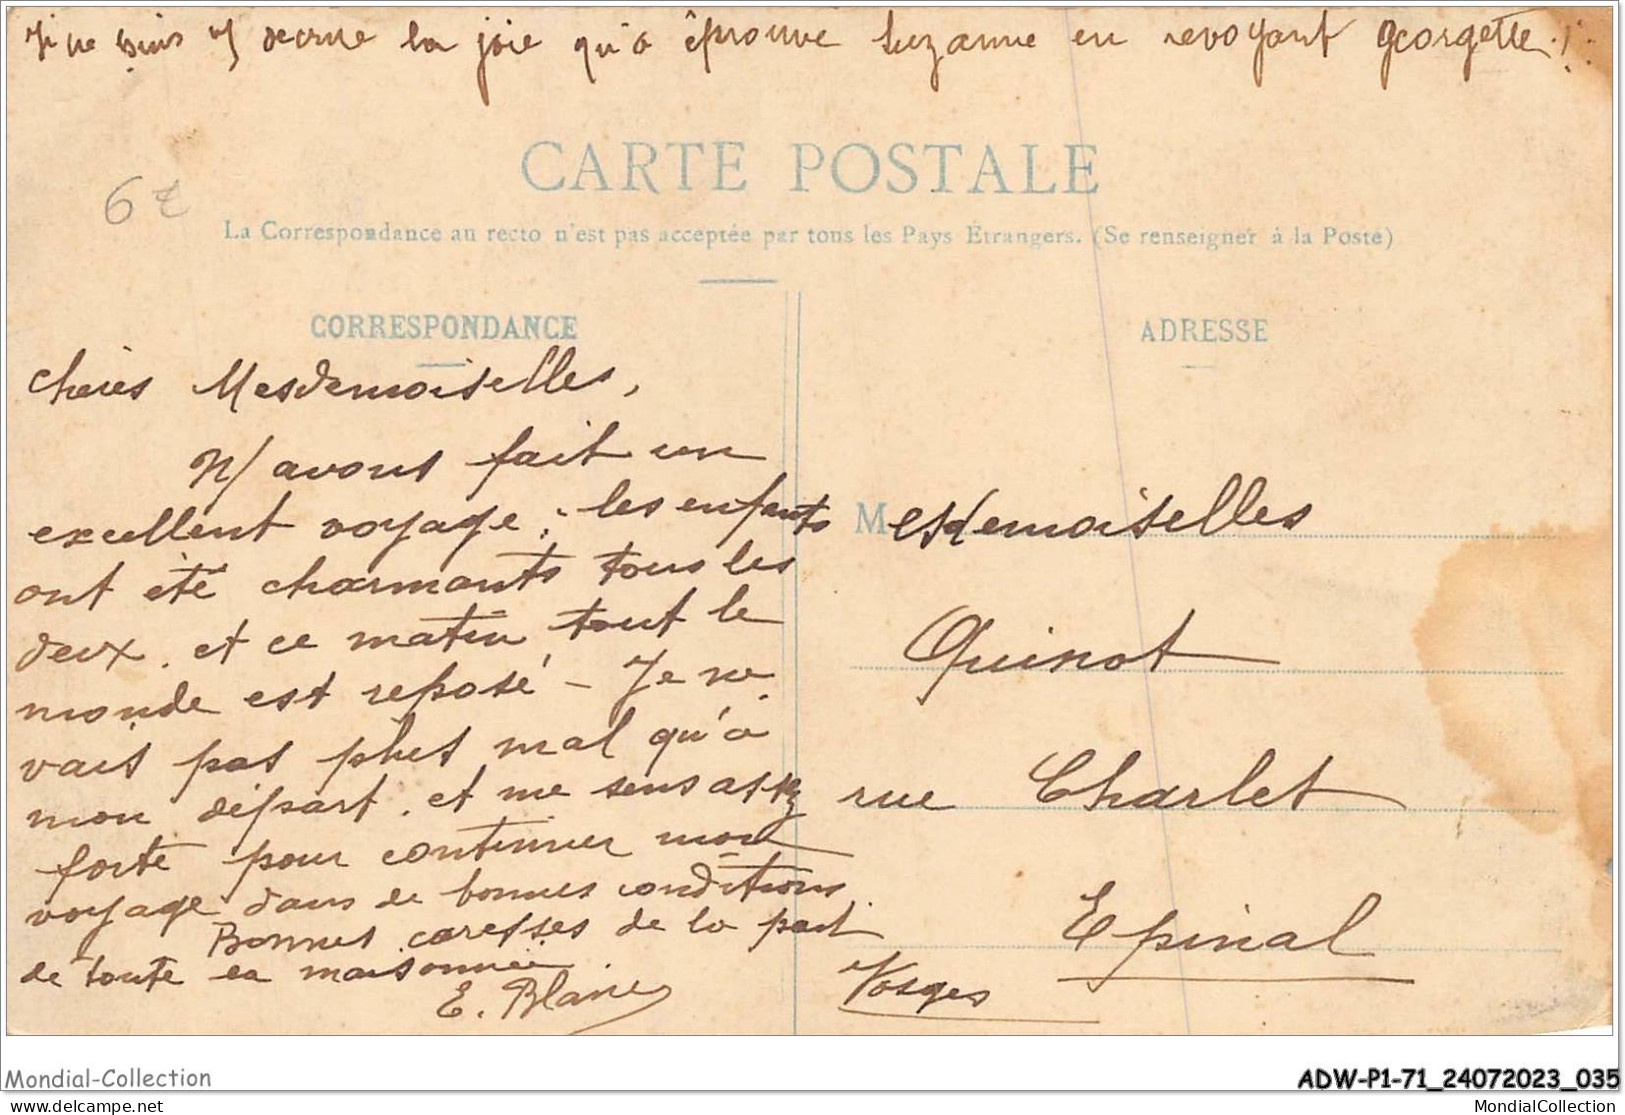 la joie qu'a éprouvé Suzanne en revoyant Georgette !
6€
CARTE POSTALE
La Correspondance au recto n'est pas acceptée par tous les Pays Étrangers. (Se renseigner à la Poste)
CORRESPONDANCE
ADRESSE
Chères Mesdemoiselles,
N/ avons fait un
excellent voyage ; les enfants
ont été charmants tous les
deux, et ce matin, tout le
monde est reposé - Je ne
vais pas plus mal qu'à
mon départ, et me sens assez
forte pour continuer mon
voyage dans de bonnes conditions.
Bonnes caresses de la part
de toute la maisonnée.
E. Blaire
Mesdemoiselles
Quinot
rue Charlet
Epinal
Vosges
Mondial-Collection
ADW-P1-71_24072023_035
delcampe.net
MondialCollection